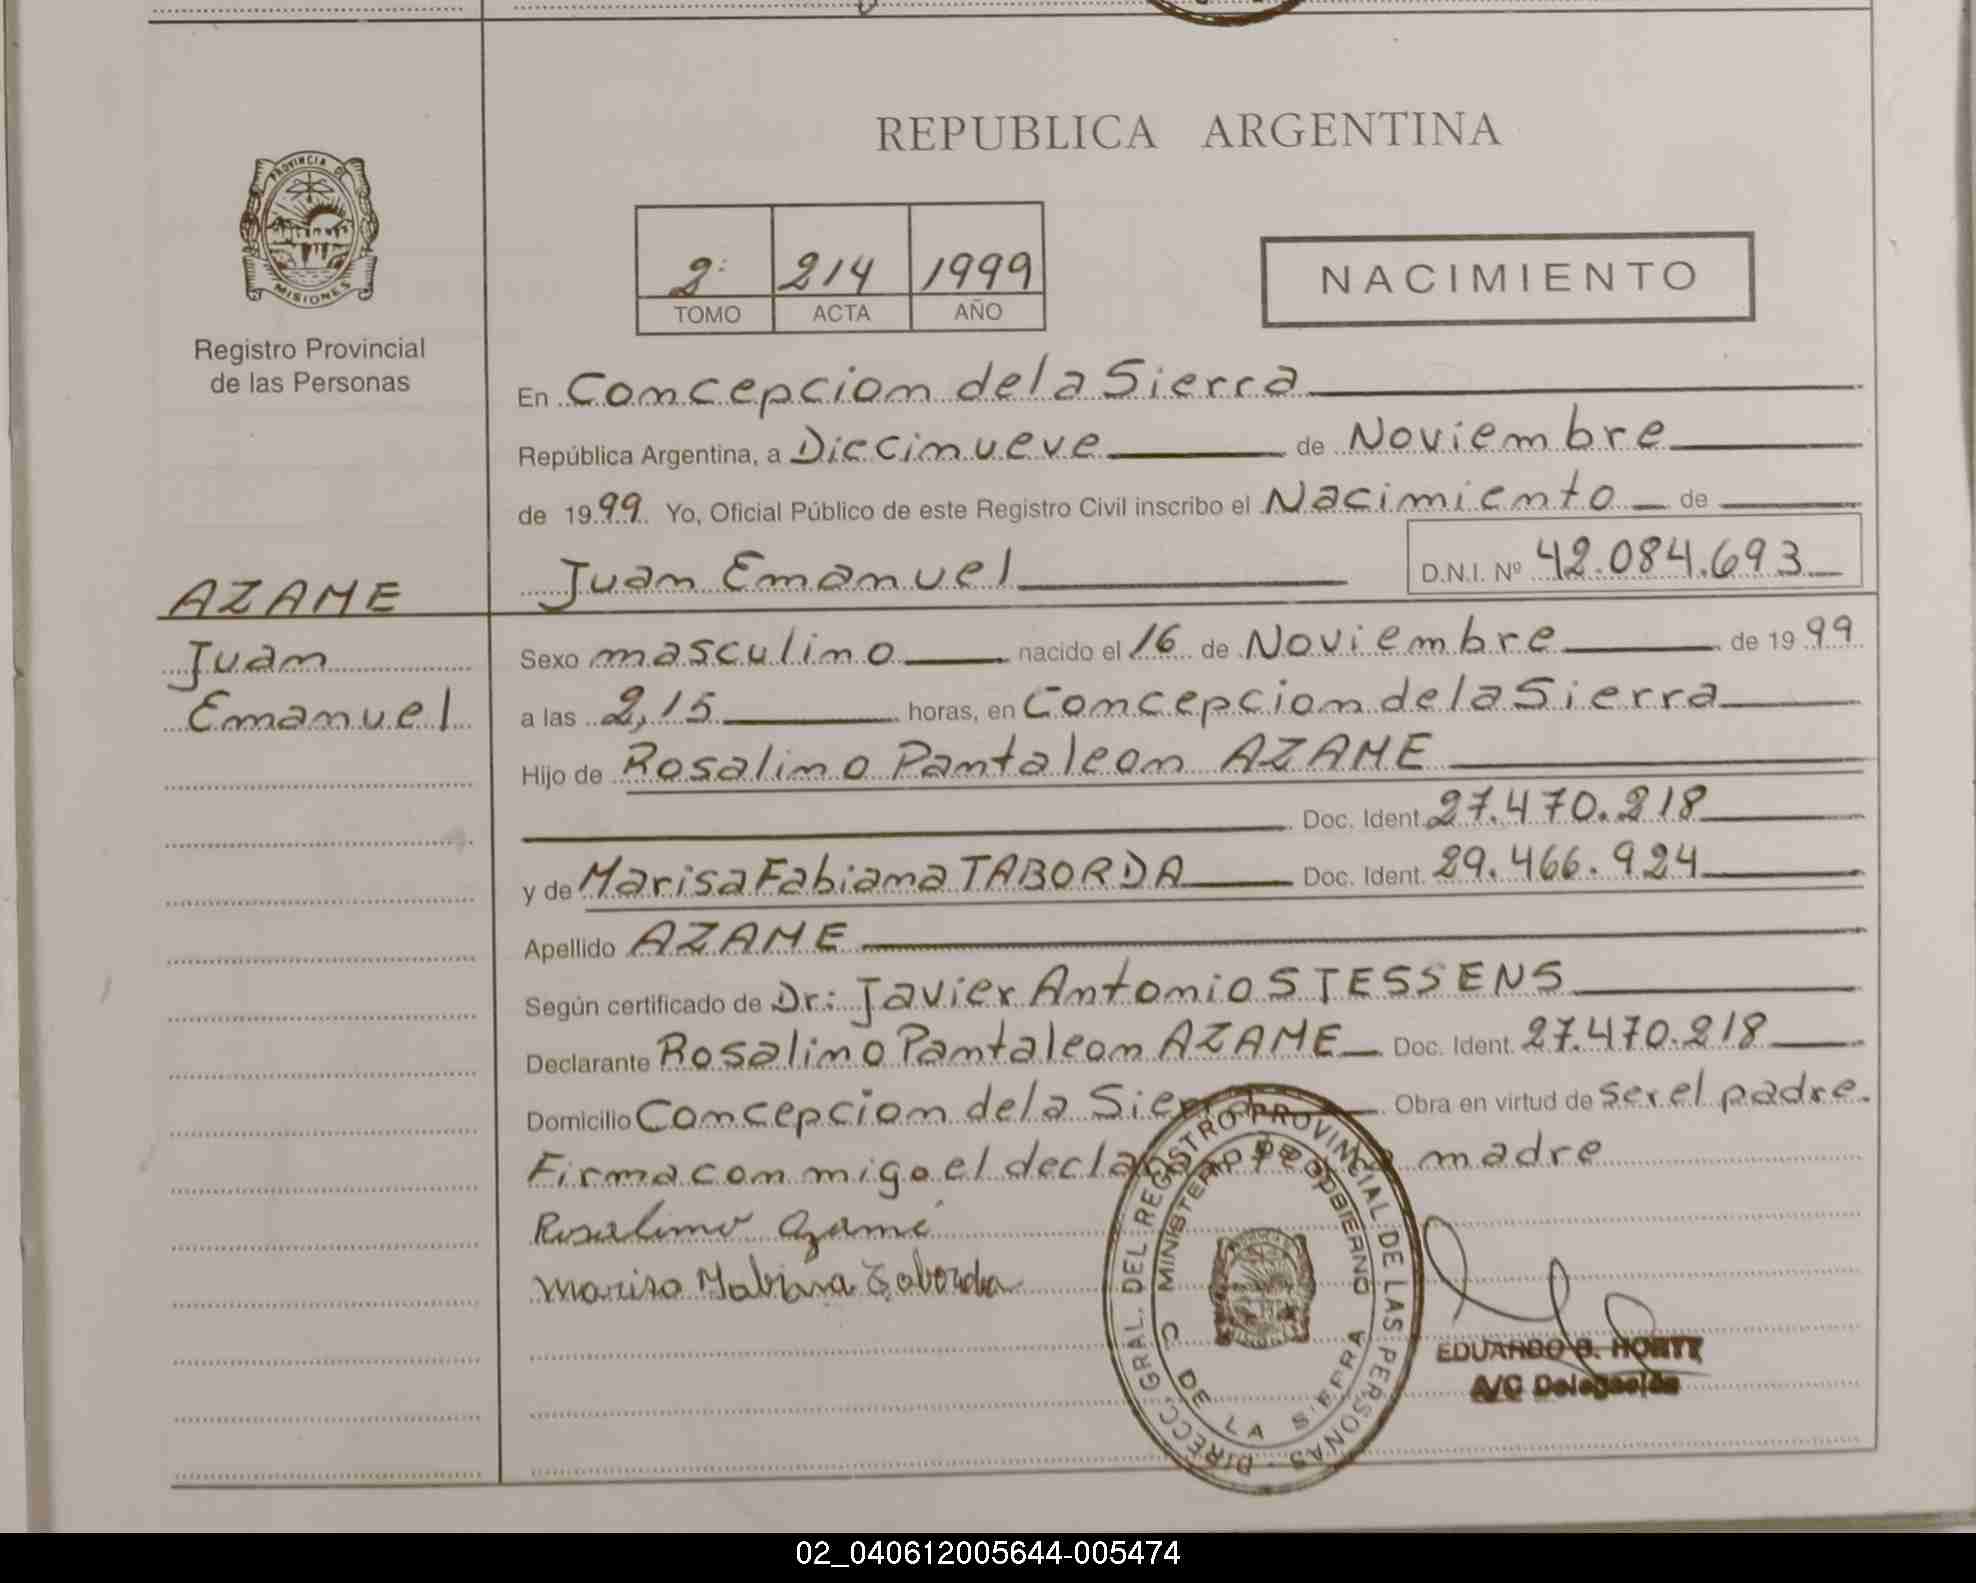 REPUBLICA ARGENTINA
PROVINCIA DE
MISIONES
Registro Provincial
de las Personas
2: 214 1999
TOMO ACTA AÑO
NACIMIENTO
En Concepcion de la Sierra
República Argentina, a Diecinueve de Noviembre
de 1999 Yo, Oficial Público de este Registro Civil inscribo el Nacimiento de
Juan Emanuel D.N.I. Nº 42.084.693
AZAME
Juan
Emanuel
Sexo masculino nacido el 16 de Noviembre de 1999
a las 2,15 horas, en Concepcion de la Sierra
Hijo de Rosalino Pantaleon AZAME
Doc. Ident. 27.470.218
y de Marisa Fabiana TABORDA Doc. Ident. 29.466.924
Apellido AZAME
Según certificado de Dr: Javier Antonio STESSENS
Declarante Rosalino Pantaleon AZAME Doc. Ident. 27.470.218
Domicilio Concepcion de la Sierra Obra en virtud de ser el padre.
Firma conmigo el madre
Rosalino Azamé
Marisa Fabiana Taborda
DIRECC. GRAL. DEL REGISTRO PROVINCIAL DE LAS PERSONAS
MINISTERIO DE GOBIERNO
C DE LA SIERRA
EDUARDO
A/C Delegación
02_040612005644-005474